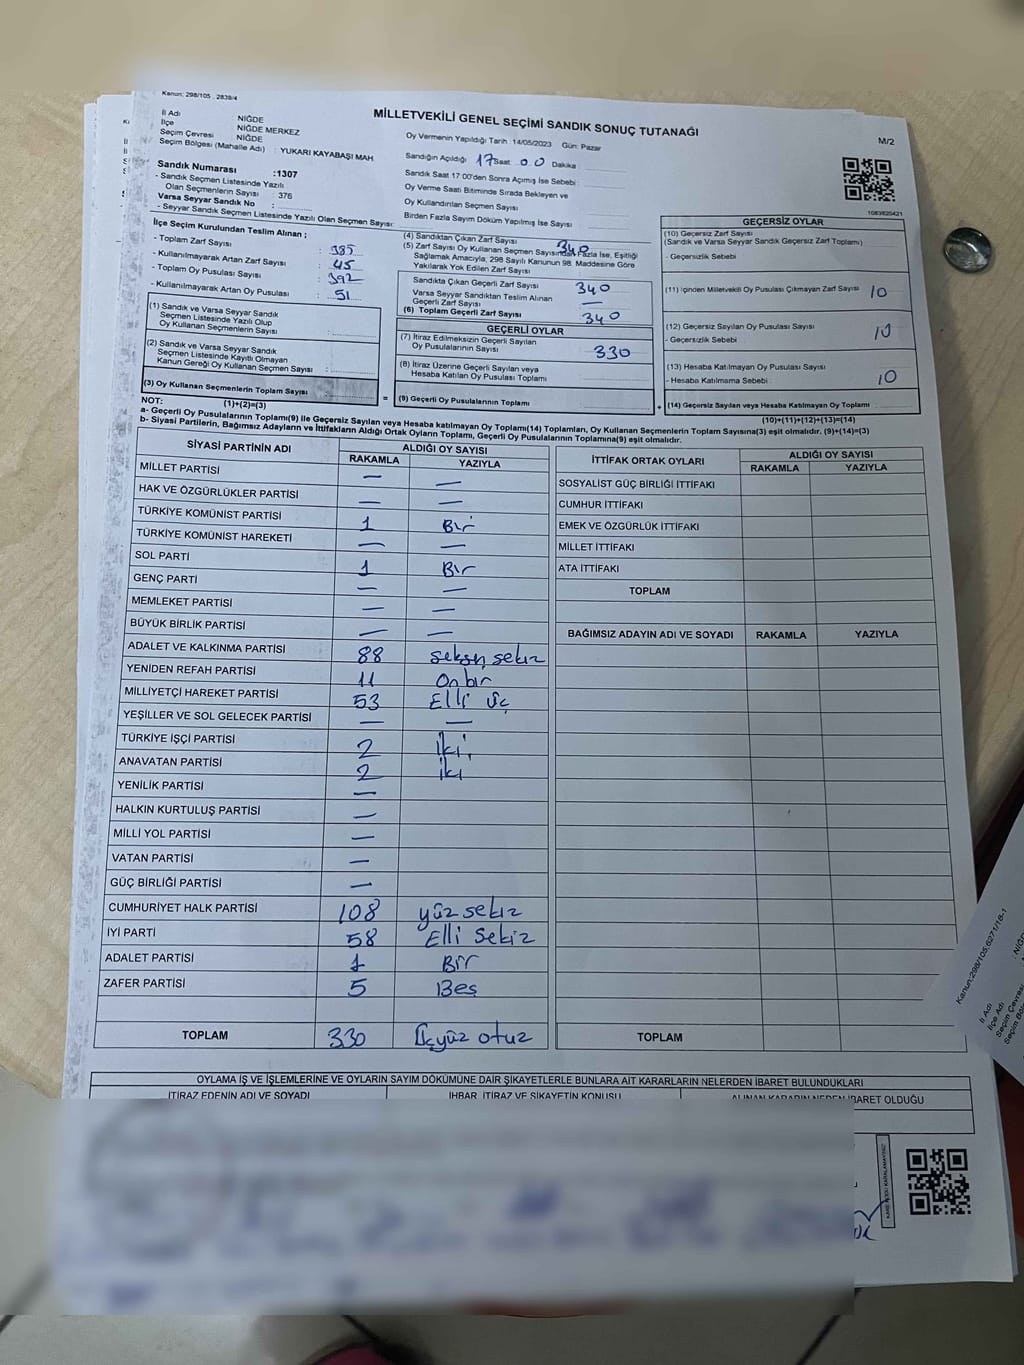 Kanun: 298/105, 2839/4
MİLLETVEKİLİ GENEL SEÇİMİ SANDIK SONUÇ TUTANAĞI
M/2
İl Adı NİĞDE
İlçe NİĞDE MERKEZ
Seçim Çevresi NİĞDE
Seçim Bölgesi (Mahalle Adı) : YUKARI KAYABAŞI MAH.
Sandık Numarası :1307
- Sandık Seçmen Listesinde Yazılı
Olan Seçmenlerin Sayısı : 376
Varsa Seyyar Sandık No :
- Seyyar Sandık Seçmen Listesinde Yazılı Olan Seçmen Sayısı:
Oy Vermenin Yapıldığı Tarih :14/05/2023 Gün: Pazar
Sandığın Açıldığı 17 Saat 00 Dakika
Sandık Saat 17:00'den Sonra Açımış İse Sebebi :
Oy Verme Saati Bitiminde Sırada Bekleyen ve
Oy Kullandırılan Seçmen Sayısı :
Birden Fazla Sayım Döküm Yapılmış İse Sayısı :
1083620421
İlçe Seçim Kurulundan Teslim Alınan ;
- Toplam Zarf Sayısı : 385
- Kullanılmayarak Artan Zarf Sayısı : 45
- Toplam Oy Pusulası Sayısı : 392
- Kullanılmayarak Artan Oy Pusulası : 51
(1) Sandık ve Varsa Seyyar Sandık
Seçmen Listesinde Yazılı Olup
Oy Kullanan Seçmenlerin Sayısı :
(2) Sandık ve Varsa Seyyar Sandık
Seçmen Listesinde Kayıtlı Olmayan
Kanun Gereği Oy Kullanan Seçmen Sayısı :
(3) Oy Kullanan Seçmenlerin Toplam Sayısı
(4) Sandıktan Çıkan Zarf Sayısı 340
(5) Zarf Sayısı Oy Kullanan Seçmen Sayısından Fazla İse, Eşitliği
Sağlamak Amacıyla, 298 Sayılı Kanunun 98. Maddesine Göre
Yakılarak Yok Edilen Zarf Sayısı
Sandıkta Çıkan Geçerli Zarf Sayısı 340
Varsa Seyyar Sandıktan Teslim Alınan
Geçerli Zarf Sayısı : —
(6) Toplam Geçerli Zarf Sayısı : 340
GEÇERLİ OYLAR
(7) İtiraz Edilmeksizin Geçerli Sayılan
Oy Pusulalarının Sayısı 330
(8) İtiraz Üzerine Geçerli Sayılan veya
Hesaba Katılan Oy Pusulası Toplamı
= (9) Geçerli Oy Pusulalarının Toplamı
GEÇERSİZ OYLAR
(10) Geçersiz Zarf Sayısı
(Sandık ve Varsa Seyyar Sandık Geçersiz Zarf Toplamı)
- Geçersizlik Sebebi
(11) İçinden Milletvekili Oy Pusulası Çıkmayan Zarf Sayısı 10
(12) Geçersiz Sayılan Oy Pusulası Sayısı
- Geçersizlik Sebebi : 10
(13) Hesaba Katılmayan Oy Pusulası Sayısı
- Hesaba Katılmama Sebebi : 10
+ (14) Geçersiz Sayılan veya Hesaba Katılmayan Oy Toplamı
NOT: (1)+(2)=(3)
(10)+(11)+(12)+(13)=(14)
a- Geçerli Oy Pusulalarının Toplamı(9) ile Geçersiz Sayılan veya Hesaba katılmayan Oy Toplamı(14) Toplamları, Oy Kullanan Seçmenlerin Toplam Sayısına(3) eşit olmalıdır. (9)+(14)=(3)
b- Siyasi Partilerin, Bağımsız Adayların ve İttifakların Aldığı Ortak Oyların Toplamı, Geçerli Oy Pusulalarının Toplamına(9) eşit olmalıdır.
SİYASİ PARTİNİN ADI ALDIĞI OY SAYISI
RAKAMLA YAZIYLA
MİLLET PARTİSİ — —
HAK VE ÖZGÜRLÜKLER PARTİSİ — —
TÜRKİYE KOMÜNİST PARTİSİ 1 Bir
TÜRKİYE KOMÜNİST HAREKETİ — —
SOL PARTİ 1 Bir
GENÇ PARTİ — —
MEMLEKET PARTİSİ — —
BÜYÜK BİRLİK PARTİSİ — —
ADALET VE KALKINMA PARTİSİ 88 seksen sekiz
YENİDEN REFAH PARTİSİ 11 Onbir
MİLLİYETÇİ HAREKET PARTİSİ 53 Elli üç
YEŞİLLER VE SOL GELECEK PARTİSİ — —
TÜRKİYE İŞÇİ PARTİSİ 2 iki
ANAVATAN PARTİSİ 2 iki
YENİLİK PARTİSİ —
HALKIN KURTULUŞ PARTİSİ —
MİLLİ YOL PARTİSİ —
VATAN PARTİSİ —
GÜÇ BİRLİĞİ PARTİSİ —
CUMHURİYET HALK PARTİSİ 108 yüz sekiz
İYİ PARTİ 58 Elli Sekiz
ADALET PARTİSİ 1 Bir
ZAFER PARTİSİ 5 Beş
TOPLAM 330 Üçyüz otuz
İTTİFAK ORTAK OYLARI ALDIĞI OY SAYISI
RAKAMLA YAZIYLA
SOSYALİST GÜÇ BİRLİĞİ İTTİFAKI
CUMHUR İTTİFAKI
EMEK VE ÖZGÜRLÜK İTTİFAKI
MİLLET İTTİFAKI
ATA İTTİFAKI
TOPLAM
BAĞIMSIZ ADAYIN ADI VE SOYADI RAKAMLA YAZIYLA
TOPLAM
OYLAMA İŞ VE İŞLEMLERİNE VE OYLARIN SAYIM DÖKÜMÜNE DAİR ŞİKAYETLERLE BUNLARA AİT KARARLARIN NELERDEN İBARET BULUNDUKLARI
İTİRAZ EDENİN ADI VE SOYADI İHBAR, İTİRAZ VE ŞİKAYETİN KONUSU ALINAN KARARIN NEDEN İBARET OLDUĞU
KARE KODU KARALAMAYINIZ!
Kanun:298/105,6271/18-1
İl Adı : NİĞDE
İlçe Adı
Seçim Çevresi